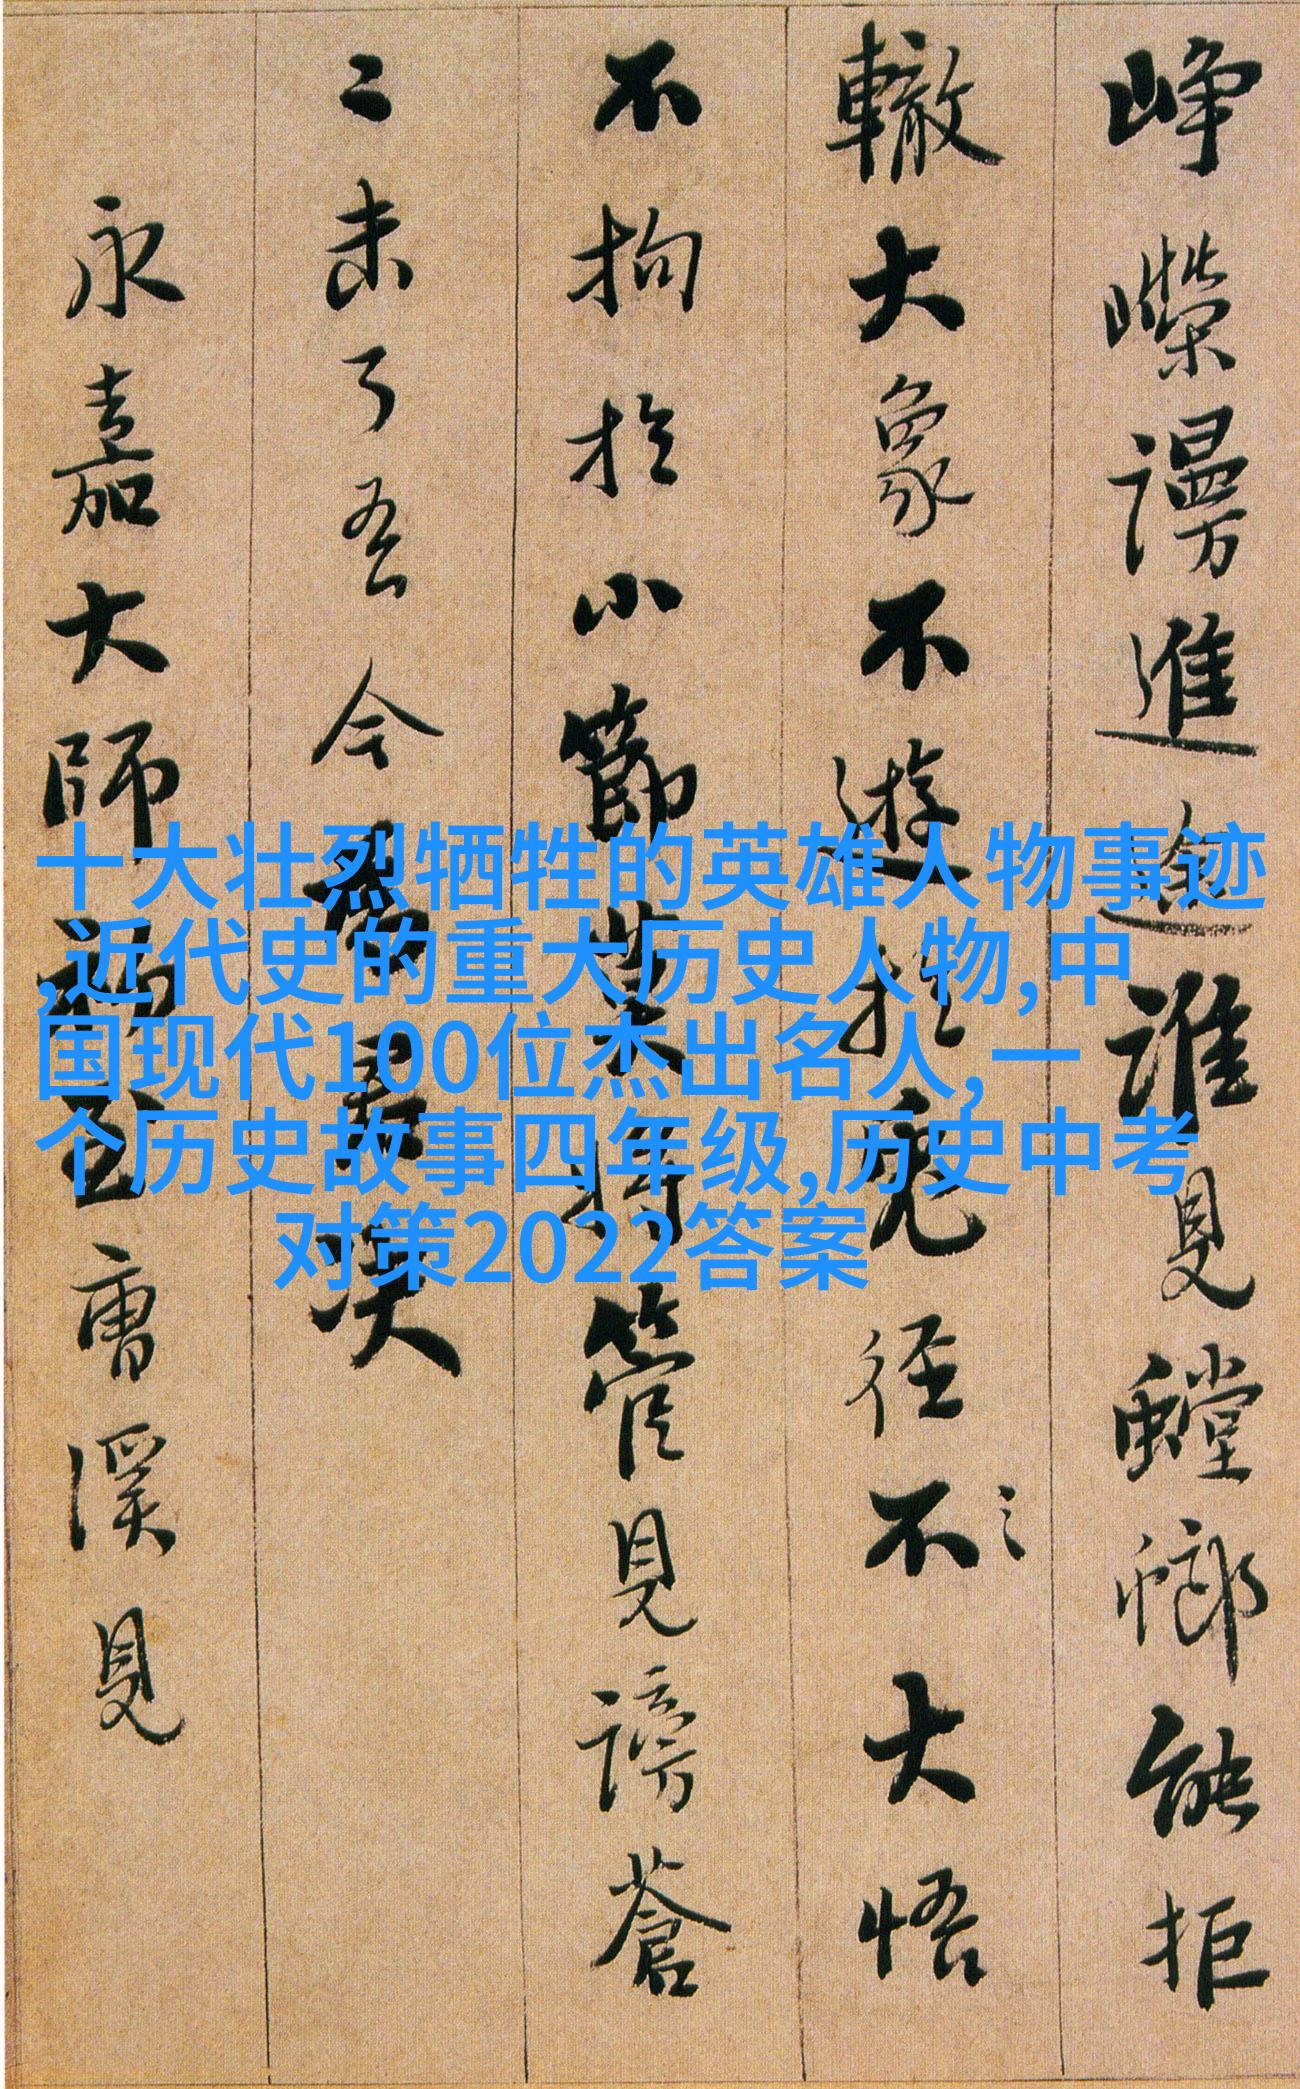 崢嶸謾進途誰見螳螂能拒
轍大象不遊於兔径不大悟
不拘於小節莫將管見謗蒼
二未了吾今為君决
永嘉大師至曹溪見
十大壮烈牺牲的英雄人物事迹
,近代史的重大历史人物,中
国现代100位杰出名人,一
个历史故事四年级,历史中考
对策2022答案